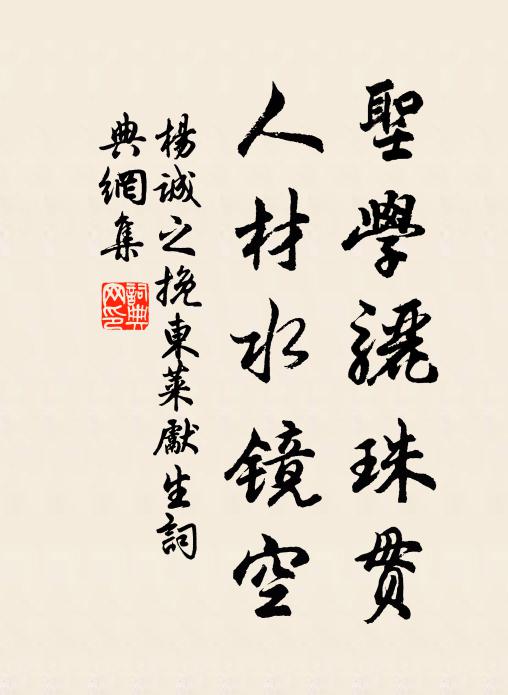 聖學驪珠貫
人材水鏡空
楊誠之挽東萊獻生詞
典網集
詞典
网印